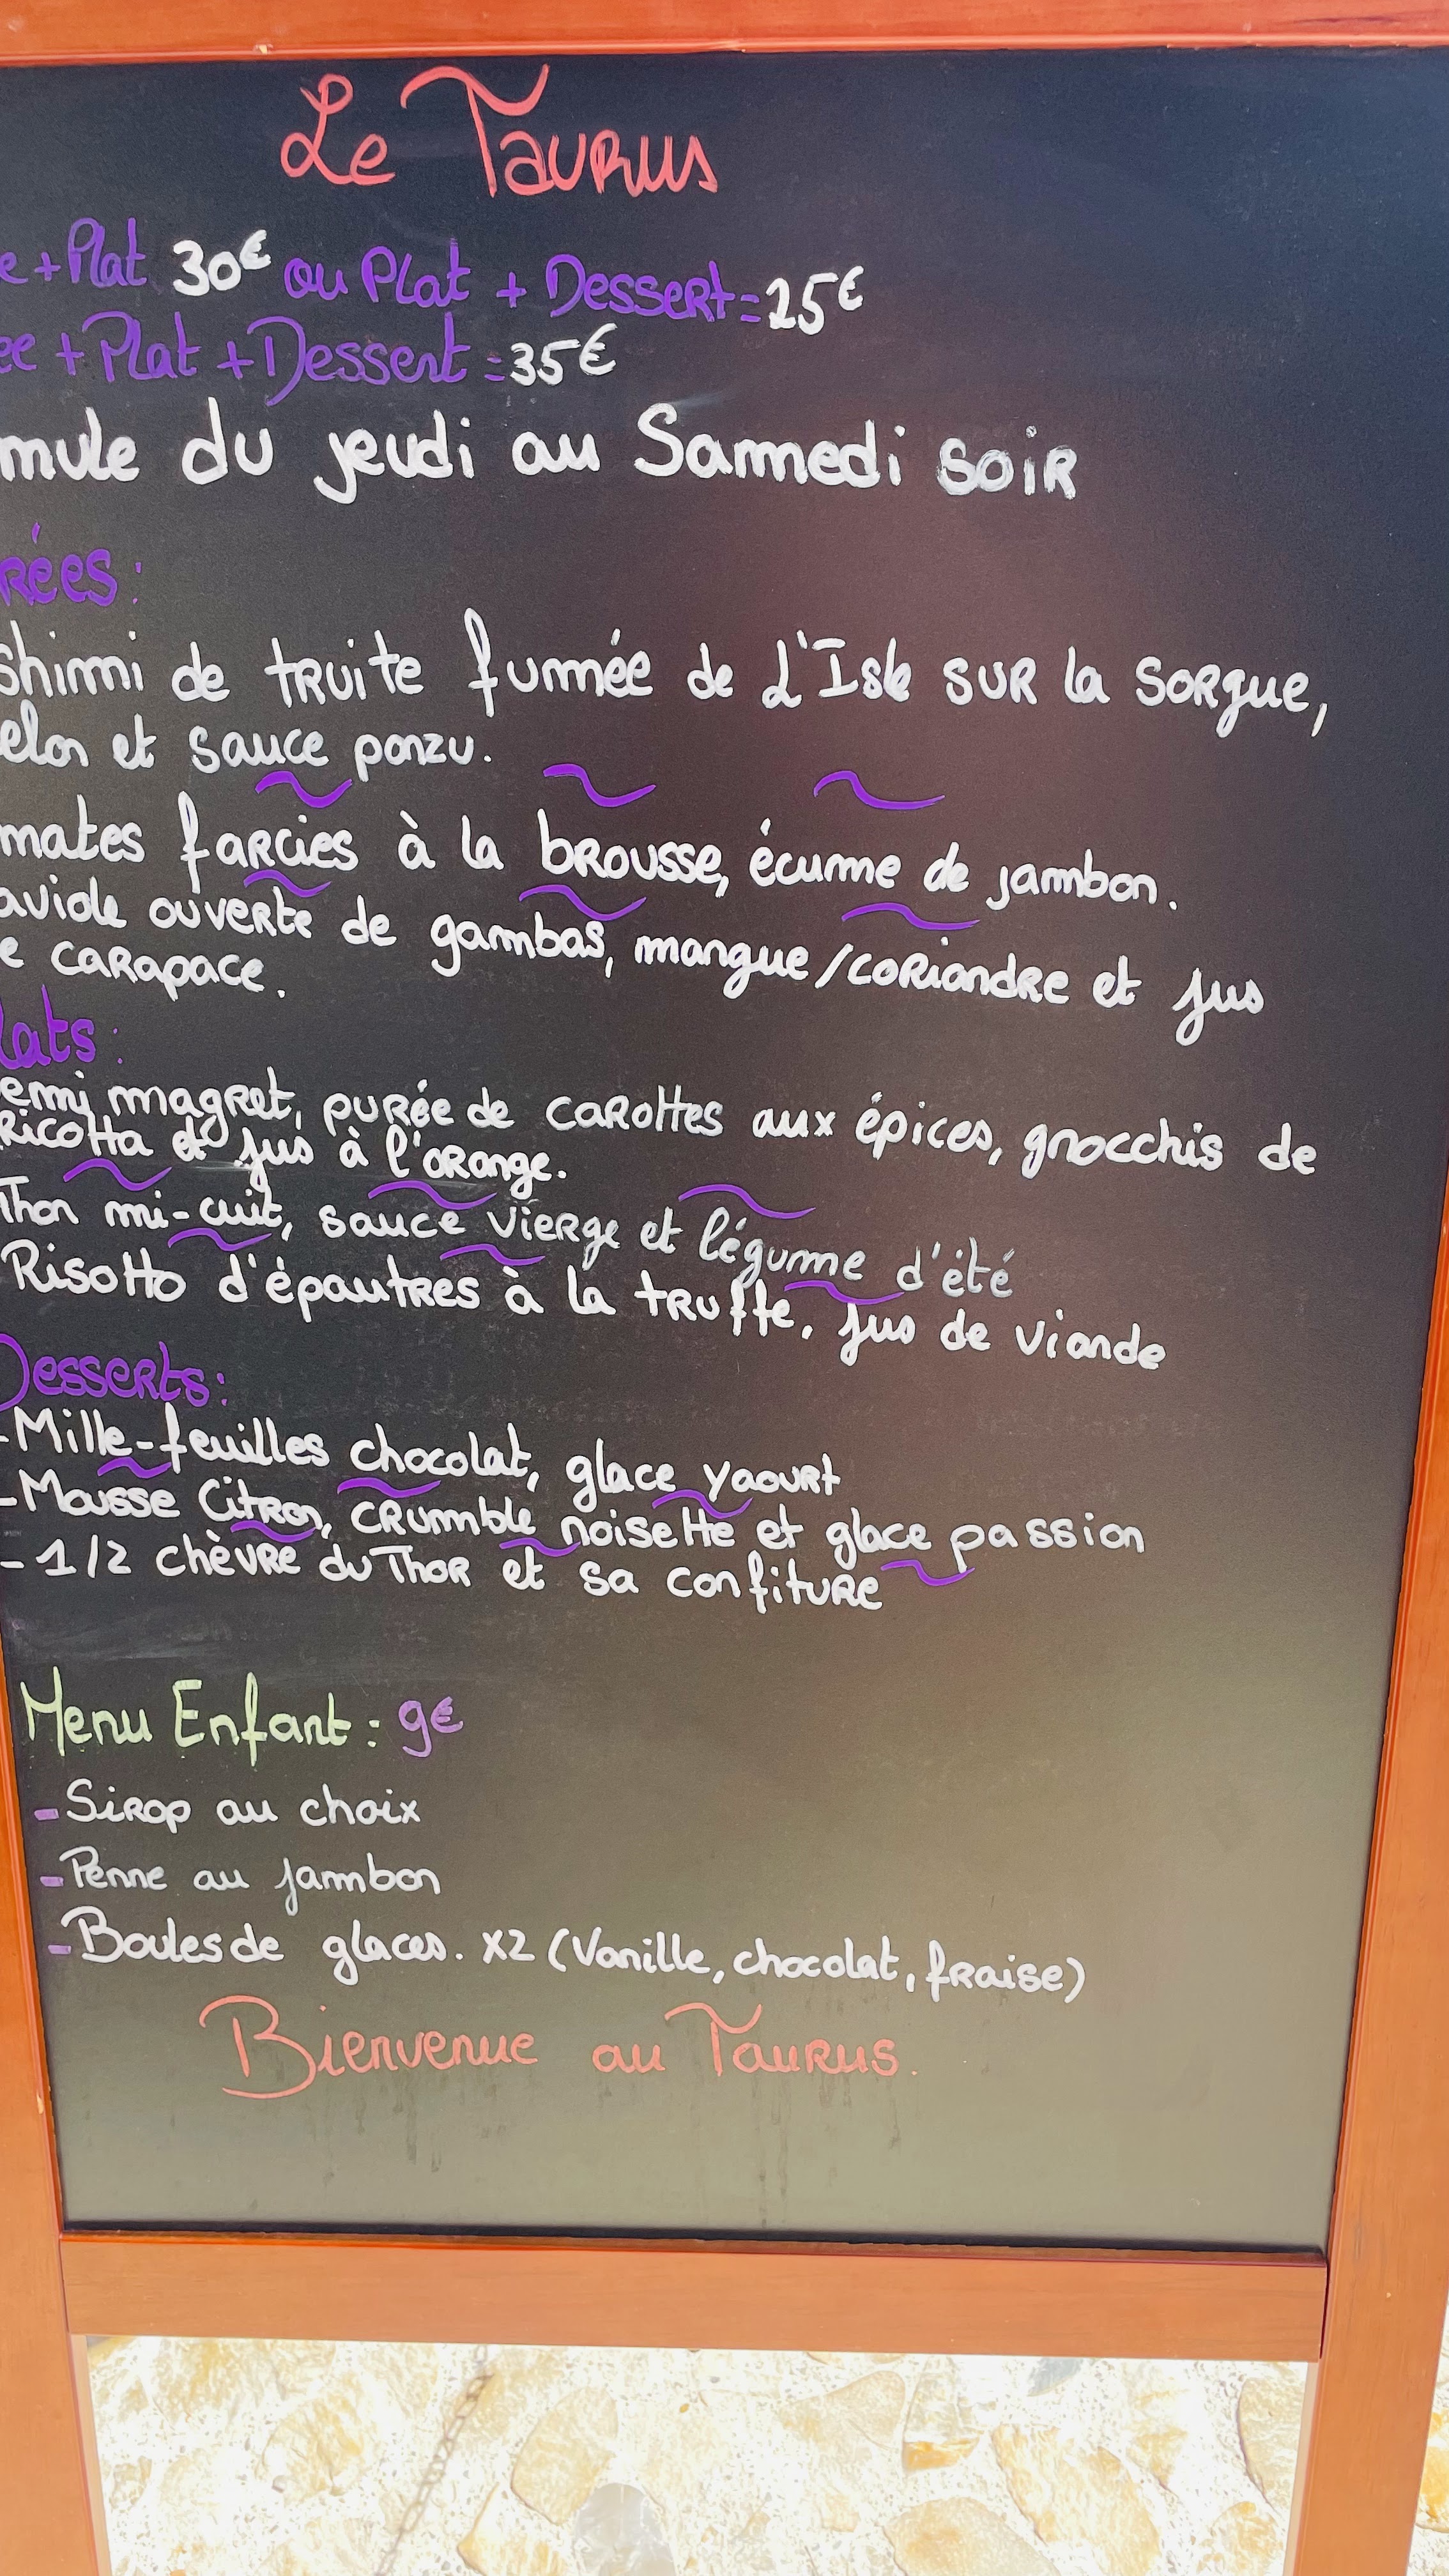 Le Taurus
e + Plat 30€ ou Plat + Dessert = 25€
ee + Plat + Dessert = 35€
mule du jeudi au Samedi soir
rées :
shimi de truite fumée de L'Isle sur la Sorgue,
elon et sauce ponzu.
mates farcies à la brousse, écume de jambon.
aviole ouverte de gambas, mangue/coriandre et jus
e carapace.
lats :
emi magret, purée de carottes aux épices, gnocchis de
Ricotta et jus à l'orange.
Thon mi-cuit, sauce vierge et légume d'été
Risotto d'épautres à la truffe, jus de viande
Desserts :
-Mille-feuilles chocolat, glace yaourt
-Mousse Citron, crumble noisette et glace passion
-1/2 chèvre du Thor et sa confiture
Menu Enfant : 9€
-Sirop au choix
-Penne au jambon
-Boules de glaces. x2 (Vanille, chocolat, fraise)
Bienvenue au Taurus.